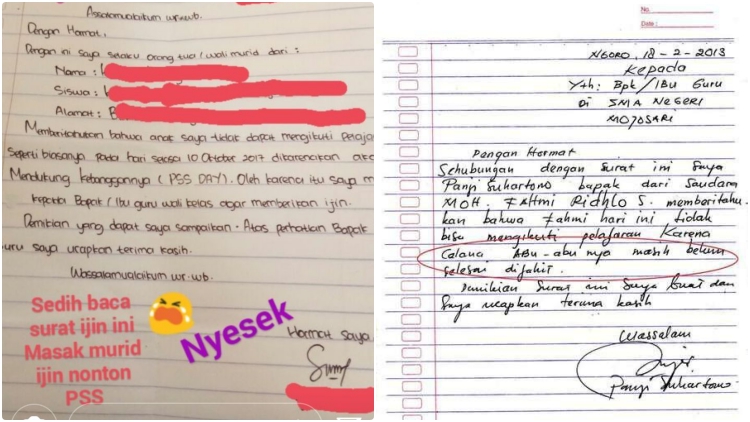 Assalamualaikum wr.wb.
Dengan Hormat,
Dengan ini saya selaku orang tua / wali murid dari :
Nama :
Siswa :
Alamat :
Memberitahukan bahwa anak saya tidak dapat mengikuti pelaja
Seperti biasanya pada hari selasa 10 Oktober 2017 dikarenakan aka
Mendukung kebanggannya (PSS DAY). Oleh karena itu saya m
kepada Bapak / Ibu guru wali kelas agar memberikan ijin.
Demikian yang dapat saya sampaikan. Atas perhatian Bapak
uru saya ucapkan terima kasih.
Wassalamualaikum wr.wb.
Sedih baca
surat ijin ini
Masak murid
ijin nonton
PSS
Nyesek
Hormat saya
No.
Date :
NGORO, 18 - 2 - 2013
Kepada
Yth: Bpk / IBu Guru
Di SMA NEGERI
MOJOSARI
Dengan Hormat
Sehubungan dengan surat ini Saya
Panji Suhartono bapak dari Saudara
MOH. FAHMI RIDHLO S. memberitahu-
kan bahwa Fahmi hari ini tidak
bisa mengikuti pelajaran Karena
Celana ABU-abu nya masih belum
selesai dijahit.
Demikian Surat ini Saya buat dan
Saya ucapkan terima kasih
Wassalam
Panji Suhartono